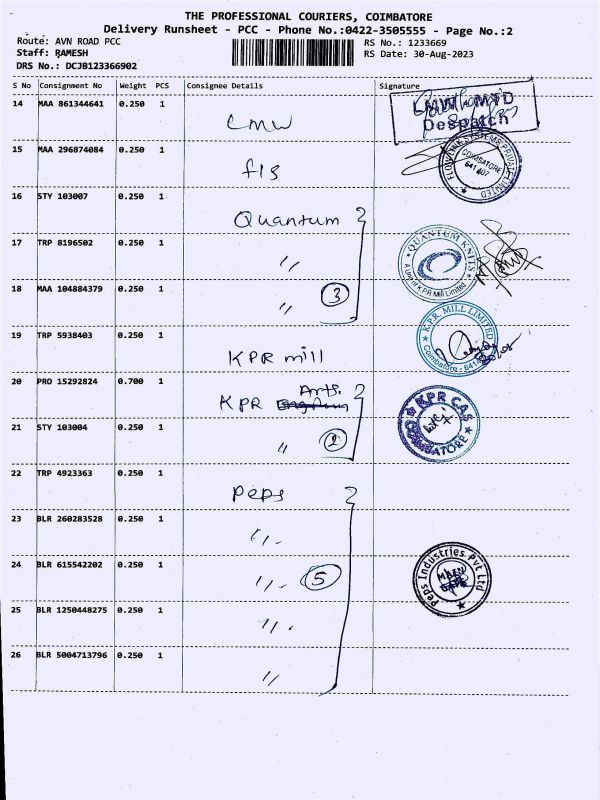 THE PROFESSIONAL COURIERS, COIMBATORE
Delivery Runsheet - PCC - Phone No.:0422-3505555 - Page No.:2
Route: AVN ROAD PCC
RS No.: 1233669
Staff: RAMESH
RS Date: 30-Aug-2023
DRS No.: DCJB123366902
S No Consignment No Weight PCS Consignee Details Signature
14 MAA 861344641 0.250 1
CMW
Despatch
15 MAA 296874084 0.250 1
FLOWLINK SYSTEMS PRIVATE LIMITED
COIMBATORE
641 407
16 STY 103007 0.250 1
Quantum
17 TRP 8196502 0.250 1
"
QUANTUM KNITS
A Unit of K.P.R Mill Limited
18 MAA 104884379 0.250 1
" 3
19 TRP 5938403 0.250 1
KPR mill
K.P.R. MILL LIMITED
Coimbatore - 641
20 PRO 15292824 0.700 1
KPR Arts.
KPR CAS
COIMBATORE
21 STY 103004 0.250 1
" 2
22 TRP 4923363 0.250 1
Peps
23 BLR 260283528 0.250 1
"
24 BLR 615542202 0.250 1
" 5
Peps Industries Pvt Ltd
MAIN GATE
25 BLR 1250448275 0.250 1
"
26 BLR 5004713796 0.250 1
"